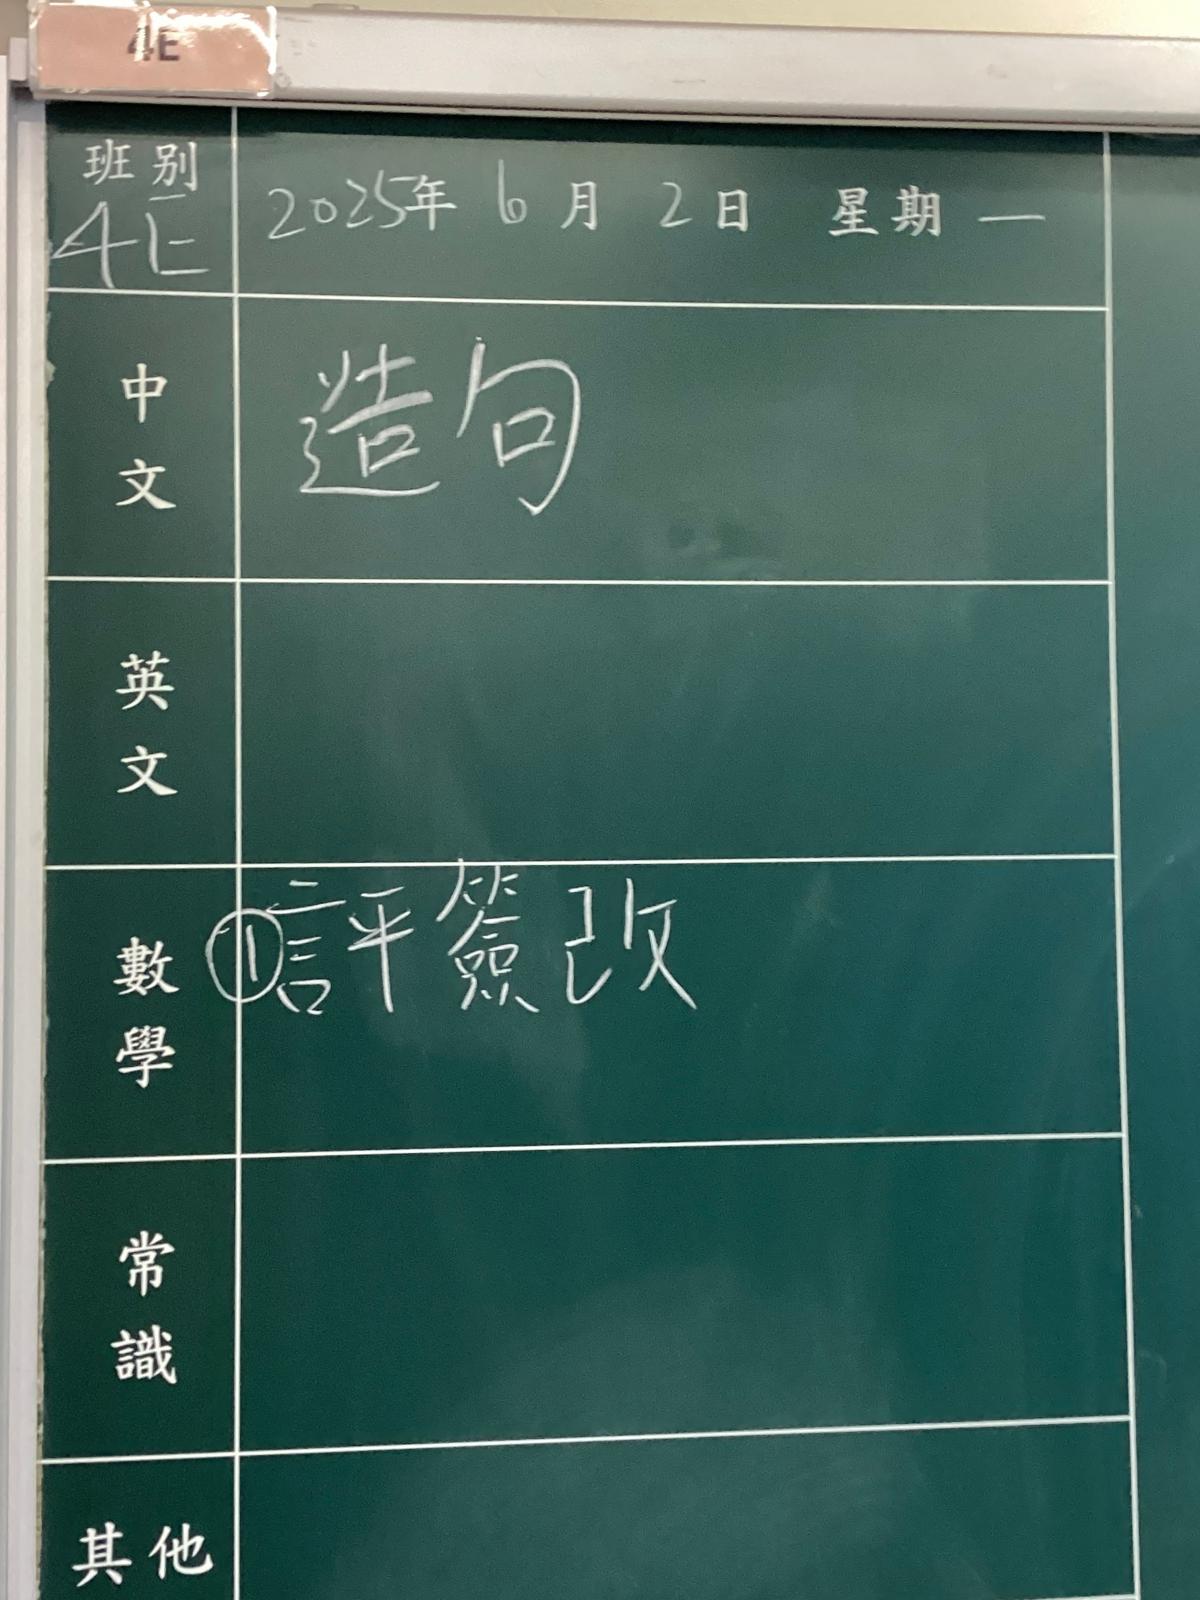 4E
班別
4E
2025年 6月 2日 星期一
中文
造句
英文
數學
①評簽改
常識
其他